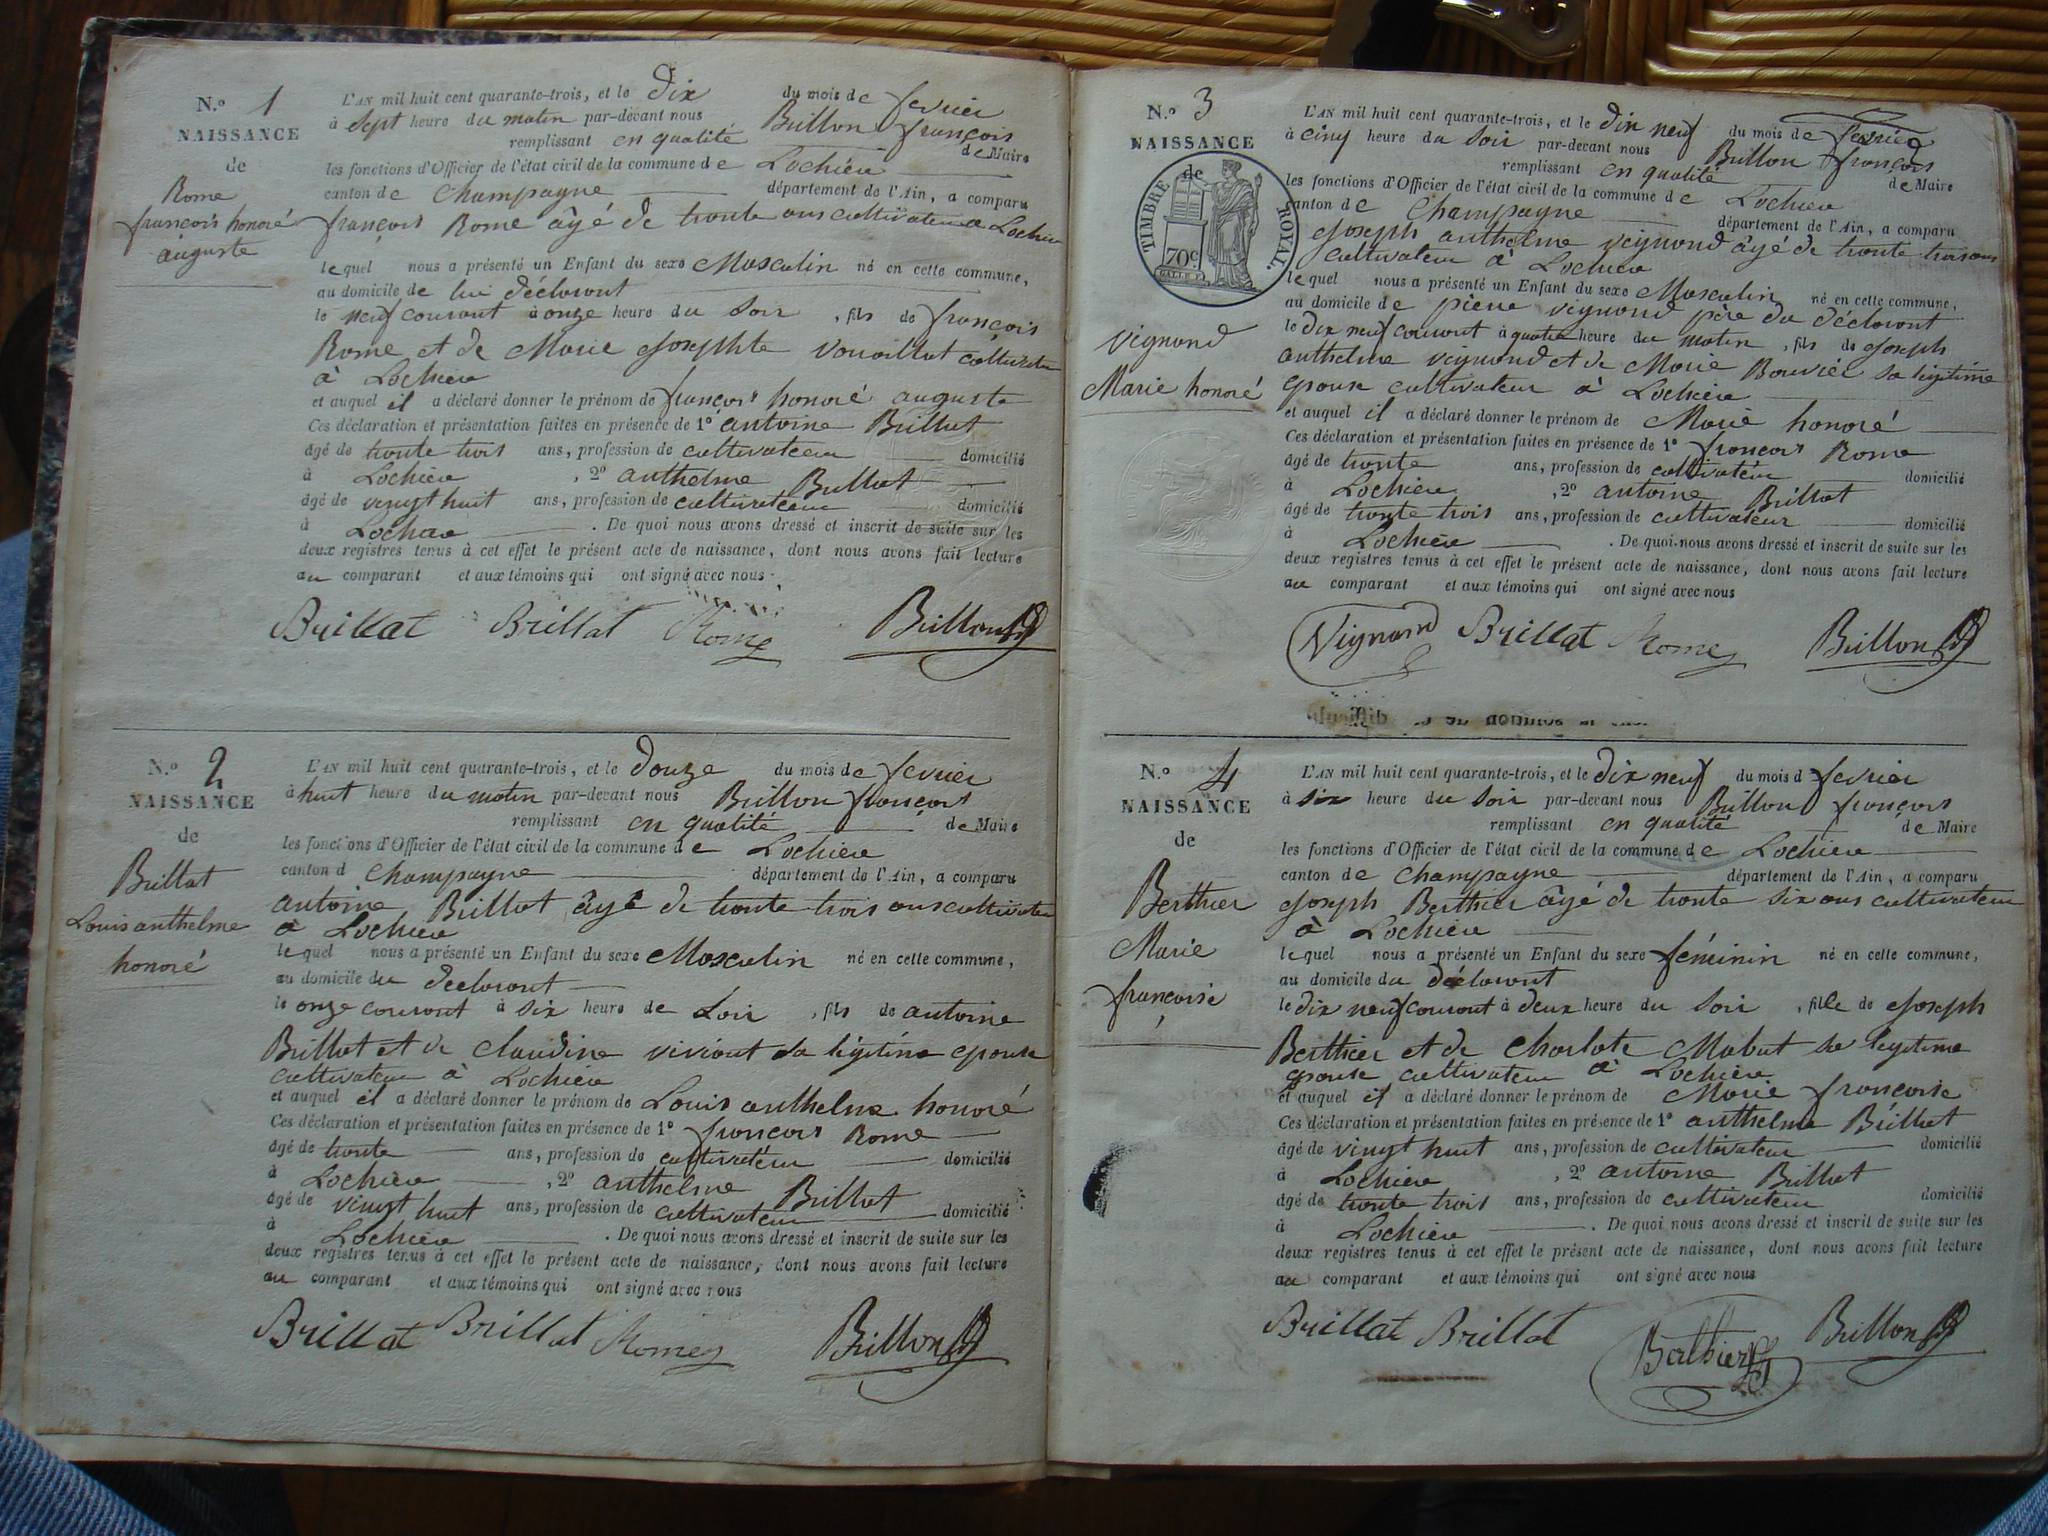 N.o 1
NAISSANCE
de
Rome
françois honoré
auguste
L'AN mil huit cent quarante-trois, et le dix du mois de fevrier
à sept heure du matin par-devant nous Brillon françois
remplissant en qualité de Maire
les fonctions d'Officier de l'état civil de la commune de Lochieu
canton de Champagne département de l'Ain, a comparu
françois Rome âgé de trente ans cultivateur à Lochieu
lequel nous a présenté un Enfant du sexe Masculin né en cette commune,
au domicile de lui déclarant
le neuf courant à onze heure du Soir, fils de françois
Rome et de Marie Josephte cultivateur
à Lochieu
et auquel il a déclaré donner le prénom de françois honoré auguste
Ces déclaration et présentation faites en présence de 1o antoine Brillat
âgé de trente trois ans, profession de cultivateur domicilié
à Lochieu, 2o anthelme Brillat
âgé de vingt huit ans, profession de cultivateur domicilié
à Lochieu. De quoi nous avons dressé et inscrit de suite sur les
deux registres tenus à cet effet le présent acte de naissance, dont nous avons fait lecture
au comparant et aux témoins qui ont signé avec nous
Brillat Brillat Rome Brillon
N.o 2
NAISSANCE
de
Brillat
Louis anthelme
honoré
L'AN mil huit cent quarante-trois, et le douze du mois de fevrier
à huit heure du matin par-devant nous Brillon françois
remplissant en qualité de Maire
les fonctions d'Officier de l'état civil de la commune de Lochieu
canton d Champagne département de l'Ain, a comparu
antoine Brillat âgé de trente trois ans cultivateur
à Lochieu
lequel nous a présenté un Enfant du sexe Masculin né en cette commune,
au domicile du declarant
le onze courant à six heure de Soir, fils de antoine
Brillat et de Claudine viviant sa legitime epouse
cultivateur à Lochieu
et auquel il a déclaré donner le prénom de Louis anthelme honoré
Ces déclaration et présentation faites en présence de 1o françois Rome
âgé de trente ans, profession de cultivateur domicilié
à Lochieu, 2o anthelme Brillat
âgé de vingt huit ans, profession de cultivateur domicilié
à Lochieu. De quoi nous avons dressé et inscrit de suite sur les
deux registres tenus à cet effet le présent acte de naissance, dont nous avons fait lecture
au comparant et aux témoins qui ont signé avec nous
Brillat Brillat Rome Brillon
N.o 3
NAISSANCE
de
TIMBRE ROYAL.
70c
Vignond
Marie honoré
L'AN mil huit cent quarante-trois, et le dix neuf du mois de fevrier
à cinq heure du soir par-devant nous Brillon françois
remplissant en qualité de Maire
les fonctions d'Officier de l'état civil de la commune de Lochieu
canton de Champagne département de l'Ain, a comparu
Joseph anthelme veignond âgé de trente trois ans
cultivateur à Lochieu
lequel nous a présenté un Enfant du sexe Masculin né en cette commune,
au domicile de pierre vignond père du déclarant
le dix neuf courant à quatre heure du matin, fils de Joseph
anthelme veignond et de Marie Bouvier sa légitime
epouse cultivateur à Lochieu
et auquel il a déclaré donner le prénom de Marie honoré
Ces déclaration et présentation faites en présence de 1o françois Rome
âgé de trente ans, profession de cultivateur domicilié
à Lochieu, 2o antoine Brillat
âgé de trente trois ans, profession de cultivateur domicilié
à Lochieu. De quoi nous avons dressé et inscrit de suite sur les
deux registres tenus à cet effet le présent acte de naissance, dont nous avons fait lecture
au comparant et aux témoins qui ont signé avec nous
Vignond Brillat Rome Brillon
N.o 4
NAISSANCE
de
Berthier
Marie
françoise
L'AN mil huit cent quarante-trois, et le dix neuf du mois d fevrier
à six heure du soir par-devant nous Brillon françois
remplissant en qualité de Maire
les fonctions d'Officier de l'état civil de la commune de Lochieu
canton de Champagne département de l'Ain, a comparu
Joseph Berthier âgé de trente six ans cultivateur
à Lochieu
lequel nous a présenté un Enfant du sexe féminin né en cette commune,
au domicile du déclarant
le dix neuf courant à deux heure du Soir, fille de Joseph
Berthier et de Charlote Mabut sa legitime
epouse cultivateur à Lochieu
et auquel il a déclaré donner le prénom de Marie françoise
Ces déclaration et présentation faites en présence de 1o anthelme Brillat
âgé de vingt huit ans, profession de cultivateur domicilié
à Lochieu, 2o antoine Brillat
âgé de trente trois ans, profession de cultivateur domicilié
à Lochieu. De quoi nous avons dressé et inscrit de suite sur les
deux registres tenus à cet effet le présent acte de naissance, dont nous avons fait lecture
au comparant et aux témoins qui ont signé avec nous
Brillat Brillat Berthier Brillon